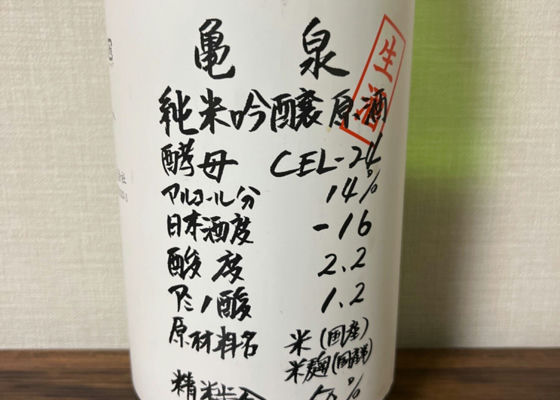 亀泉
生酒
純米吟醸原酒
酵母 CEL-24
アルコール分 14%
日本酒度 -16
酸度 2.2
アミノ酸 1.2
原材料名 米(国産)
米麹(国産米)
精米歩合 50%